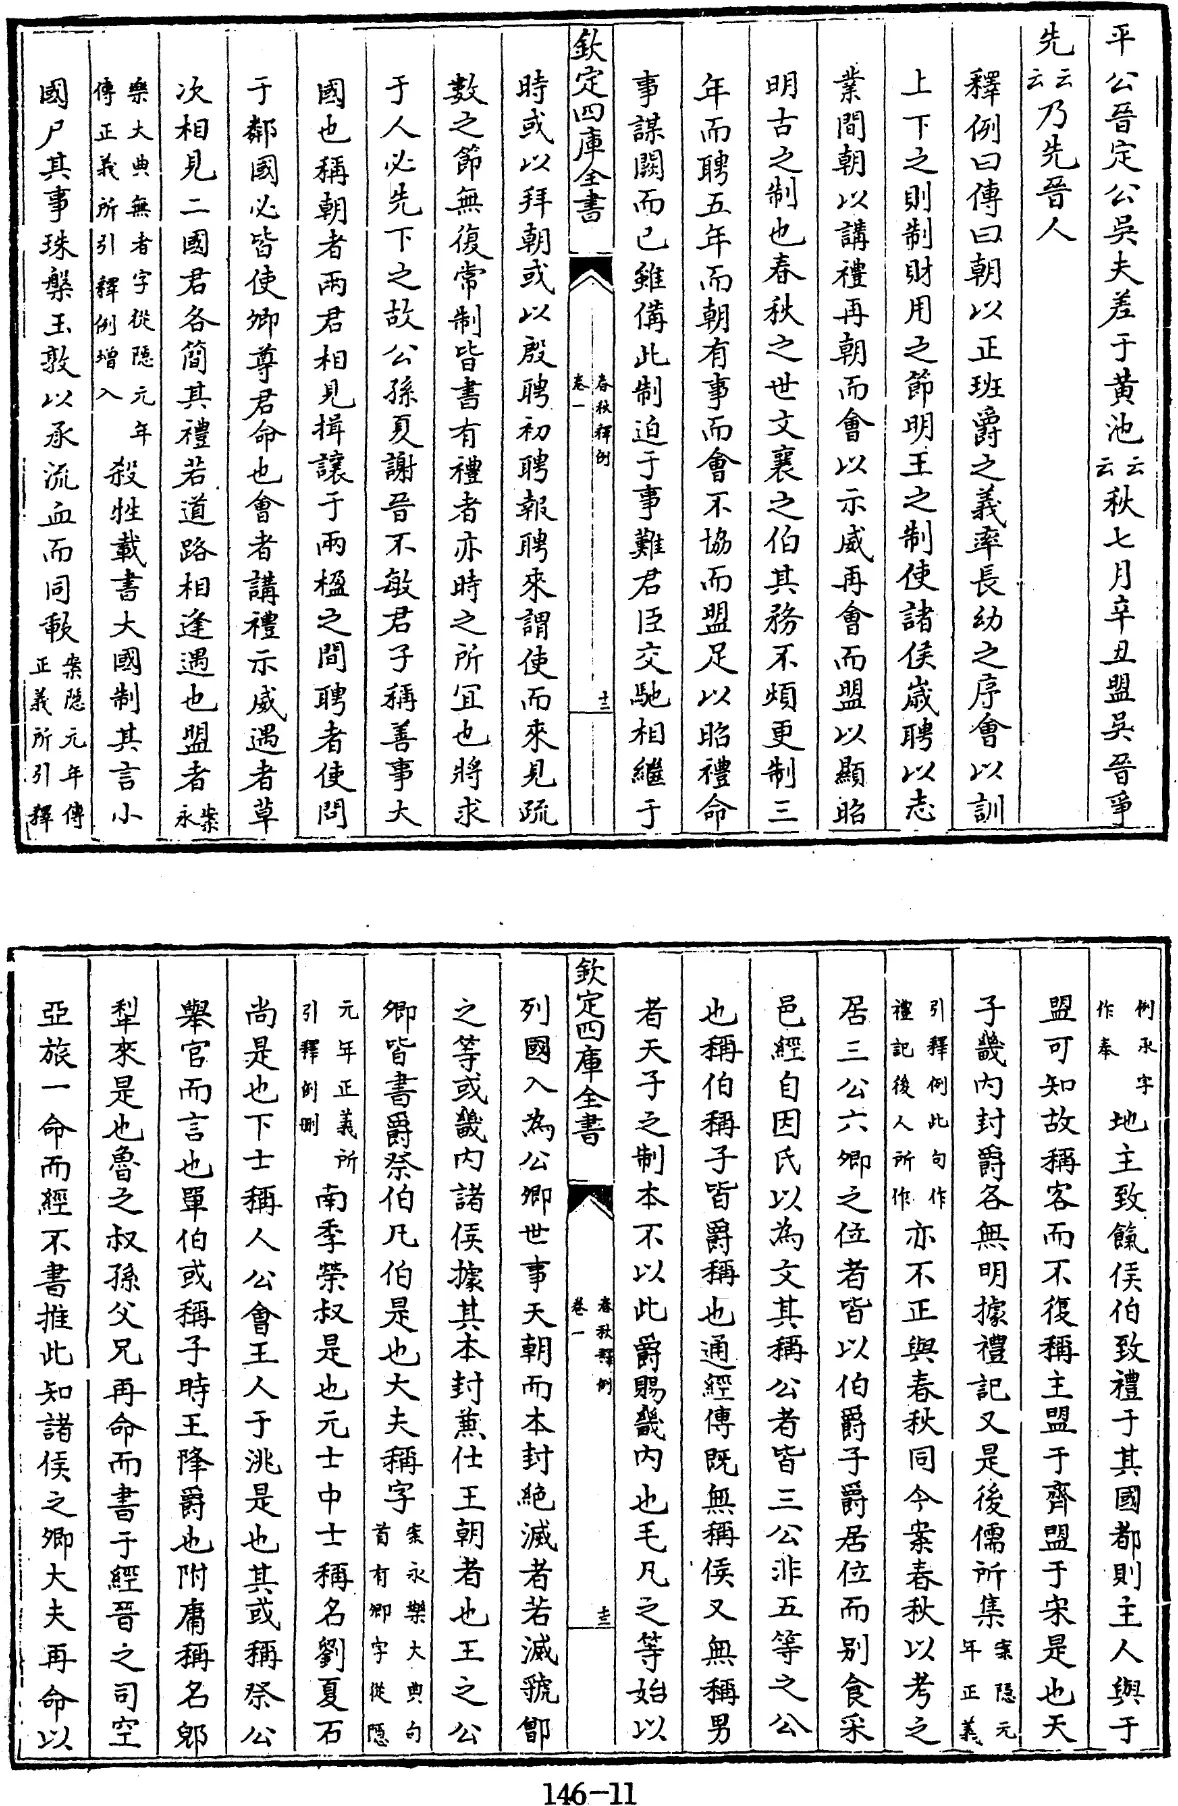 平公晉定公吳夫差于黃池云云秋七月辛丑盟吳晉爭
先云云乃先晉人
釋例曰傳曰朝以正班爵之義率長幼之序會以訓
上下之則制財用之節明王之制使諸侯歲聘以志
業間朝以講禮再朝而會以示威再會而盟以顯昭
明古之制也春秋之世文襄之伯其務不煩更制三
年而聘五年而朝有事而會不協而盟足以昭禮命
事謀闕而已雖備此制迫于事難君臣交馳相繼于
欽定四庫全書
春秋釋例
卷一
十二
時或以拜朝或以殷聘初聘報聘來謂使而來見疏
數之節無復常制皆書有禮者亦時之所宜也將求
于人必先下之故公孫夏謝晉不敏君子稱善事大
國也稱朝者兩君相見揖讓于兩楹之間聘者使問
于鄰國必皆使卿尊君命也會者講禮示威遇者草
次相見二國君各簡其禮若道路相逢遇也盟者案永
樂大典無者字從隱元年傳正義所引釋例增入殺牲載書大國制其言小
國尸其事珠槃玉敦以承流血而同歃案隱元年傳正義所引釋
例承字作奉地主致餼侯伯致禮于其國都則主人與于
盟可知故稱客而不復稱主盟于齊盟于宋是也天
子畿内封爵各無明據禮記又是後儒所集案隱元年正義
引釋例此句作禮記後人所作亦不正與春秋同今案春秋以考之
居三公六卿之位者皆以伯爵子爵居位而别食采
邑經自因氏以為文其稱公者皆三公非五等之公
也稱伯稱子皆爵稱也通經傳既無稱侯又無稱男
者天子之制本不以此爵賜畿内也毛凡之等始以
欽定四庫全書
春秋釋例
卷一
十三
列國入為公卿世事天朝而本封絶滅者若滅虢鄶
之等或畿内諸侯據其本封兼仕王朝者也王之公
卿皆書爵祭伯凡伯是也大夫稱字案永樂大典句首有卿字從隱
元年正義所引釋例刪南季榮叔是也元士中士稱名劉夏石
尚是也下士稱人公會王人于洮是也其或稱祭公
舉官而言也單伯或稱子時王降爵也附庸稱名郳
犁來是也魯之叔孫父兄再命而書于經晉之司空
亞旅一命而經不書推此知諸侯之卿大夫再命以
146-11